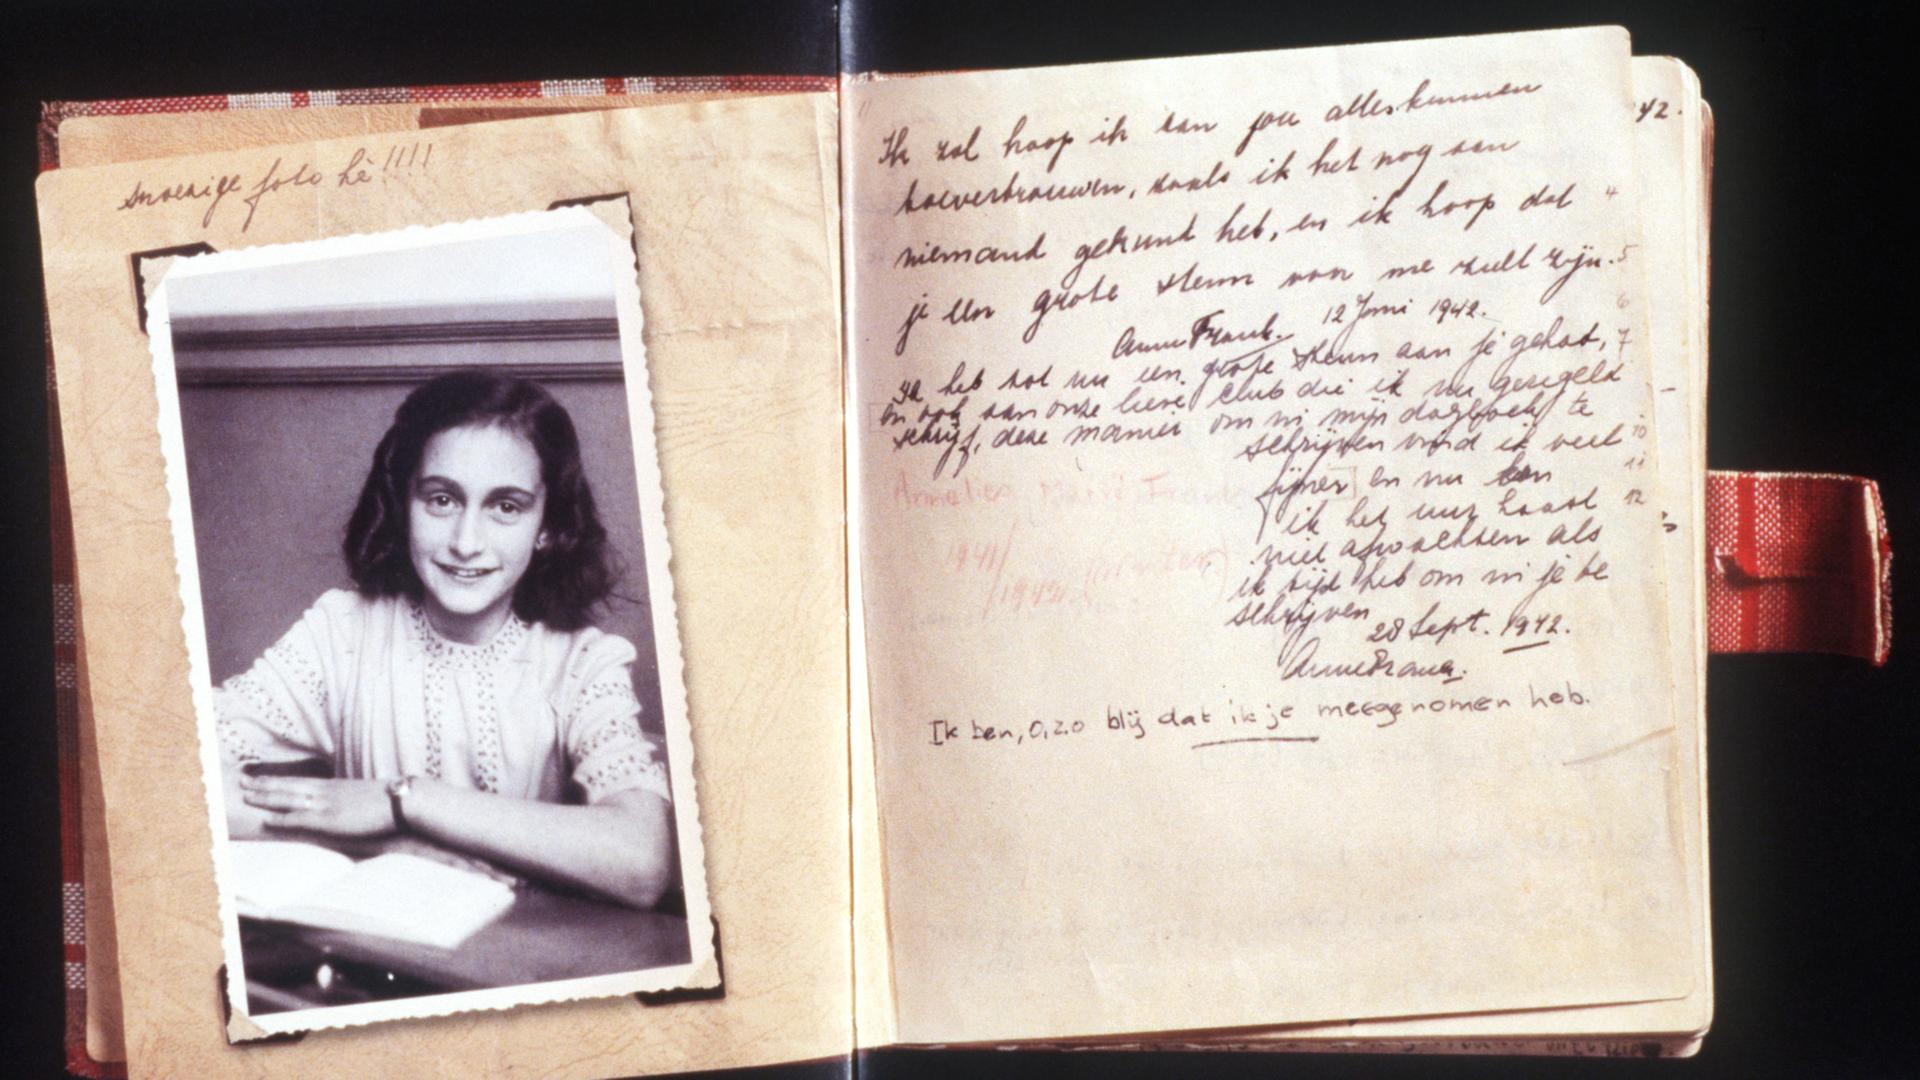 snoezige foto hè!!!!
Ik zal hoop ik aan jou alles kunnen
toevertrouwen, zoals ik het nog aan
niemand gekund heb, en ik hoop dat
je een grote steun voor me zult zijn.
Anne Frank. 12 Juni 1942.
Ik heb tot nu een grote steun aan je gehad,
en ook aan onze lieve club die ik nu geregeld
schrijf, deze manier om in mijn dagboek te
schrijven vind ik veel
fijner en nu kan
ik het uur haast
niet afwachten als
ik tijd heb om in je te
schrijven
28 Sept. 1942.
Anne Frank.
Ik ben, o, zo blij dat ik je meegenomen heb.
Annelies Marie Frank
1941/
/1942.
42.
4
5
6
7
10
11
12